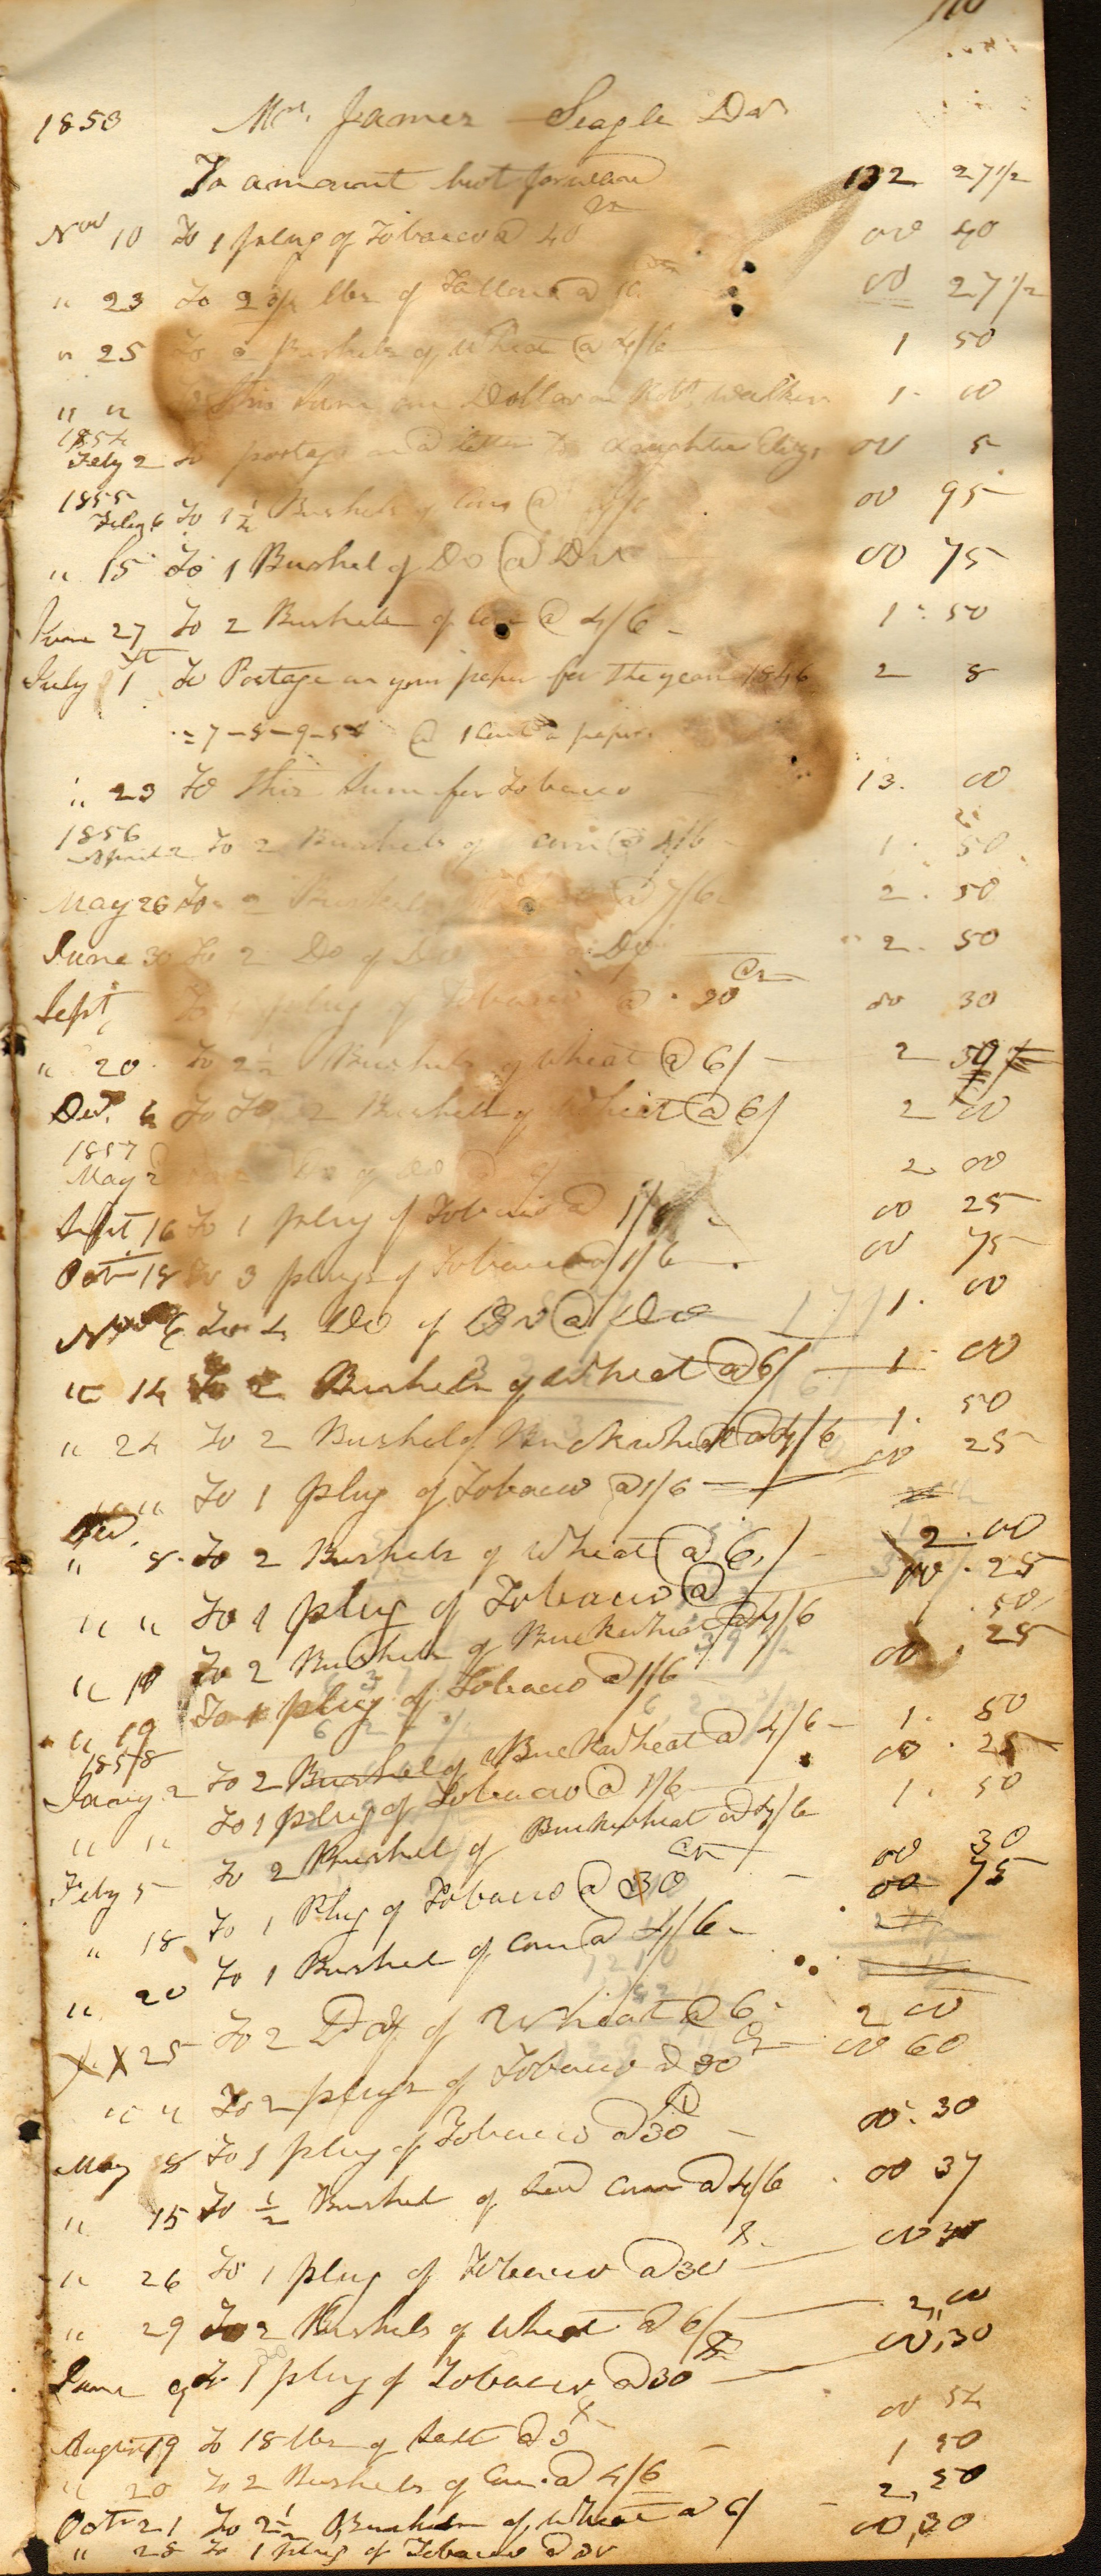 110
1853 Mr. James Seagle Dr
To amount brot forward 132 27 1/2
Nov 10 To 1 plug of Tobacco @ 40 00 40
" 23 To 2 3/4 lbs of Tallow @ 10 00 27 1/2
" 25 To 2 Bushels of Wheat @ 4/6 1 50
" " This Sum one Dollar on Robt Walker 1. 00
1854
Feby 2 To postage on a letter to daughter Eliz, 00 5
1855
Feby 6 To 1 1/4 Bushels of Corn @ 00 95
" 15 To 1 Bushel of Do @ Do 00 75
June 27 To 2 Bushels of Corn @ 4/6 1 : 50
July 1st To Postage on your paper for the year 1846 2 8
= 7 – 8 – 9 – 50 @ 1 Cent a paper
" 23 To this Sum for Tobacco 13. 00
1856
April 2 To 2 Bushels of corn @ 4/6 1. 50
May 26 To 2 Bushels @ 7/6 2. 50
June 30 To 2 Do of Do Do 2. 50
Sept, To 1 plug of Tobacco @ 30 Cn 00 30
" 20 To 2 1/2 Bushels of Wheat @ 6/ 2 50
Dec. 6 To To 2 Bushels of Wheat @ 6/ 2 00
1857
May 2 Do of Do @ 2 00
Sept 16 To 1 plug of Tobacco @ 1/6 00 25
Oct 18 To 3 plugs of Tobacco @ 1/6 00 75
Nov 6 To 4 Do of Do @ Do 1. 00
" 14 To 2 Bushels of Wheat @ 6/ 1 00
" 24 To 2 Bushel of Buckwheat @ 4/6 1. 50
" " To 1 plug of Tobacco @ 1/6 00 25
Dec.
" 8. To 2 Bushels of Wheat @ 6/ 2. 00
" " To 1 plug of Tobacco @ 00. 25
" 10 To 2 Bushels of Buckwheat @ 4/6 . 50
" 19 To 1 plug of Tobacco @ 1/6 00. 25
1858
Janry 2 To 2 Bushel of Buckwheat @ 4/6 1. 50
" " To 1 plug of Tobacco @ 1/6 00. 25
Feby 5 To 2 Bushel of Buckwheat @ 4/6 1. 50
" 18 To 1 Plug of Tobacco @ 30 Cn 00 30
" 20 To 1 Bushel of Corn @ 4/6 00 75
X X 25 To 2 Do of Wheat @ 6 2 00
" " To 2 plugs of Tobacco @ 30 00 60
May 8 To 1 plug of Tobacco @ 30 00. 30
" 15 To 1/2 Bushel of Seed Corn @ 4/6 00 37
" 26 To 1 plug of Tobacco @ 30 00 30
" 29 To 2 Bushels of Wheat @ 6/ 2,, 00
June 9 To 1 plug of Tobacco @ 30 00,30
August 19 To 18 lbs of Salt @ 3 00 54
" 20 To 2 Bushels of Corn @ 4/6 1 50
Oct 21 To 2 1/2 Bushels of Wheat @ 6/ 2,50
" 28 To 1 plug of Tobacco @ 30 00,30